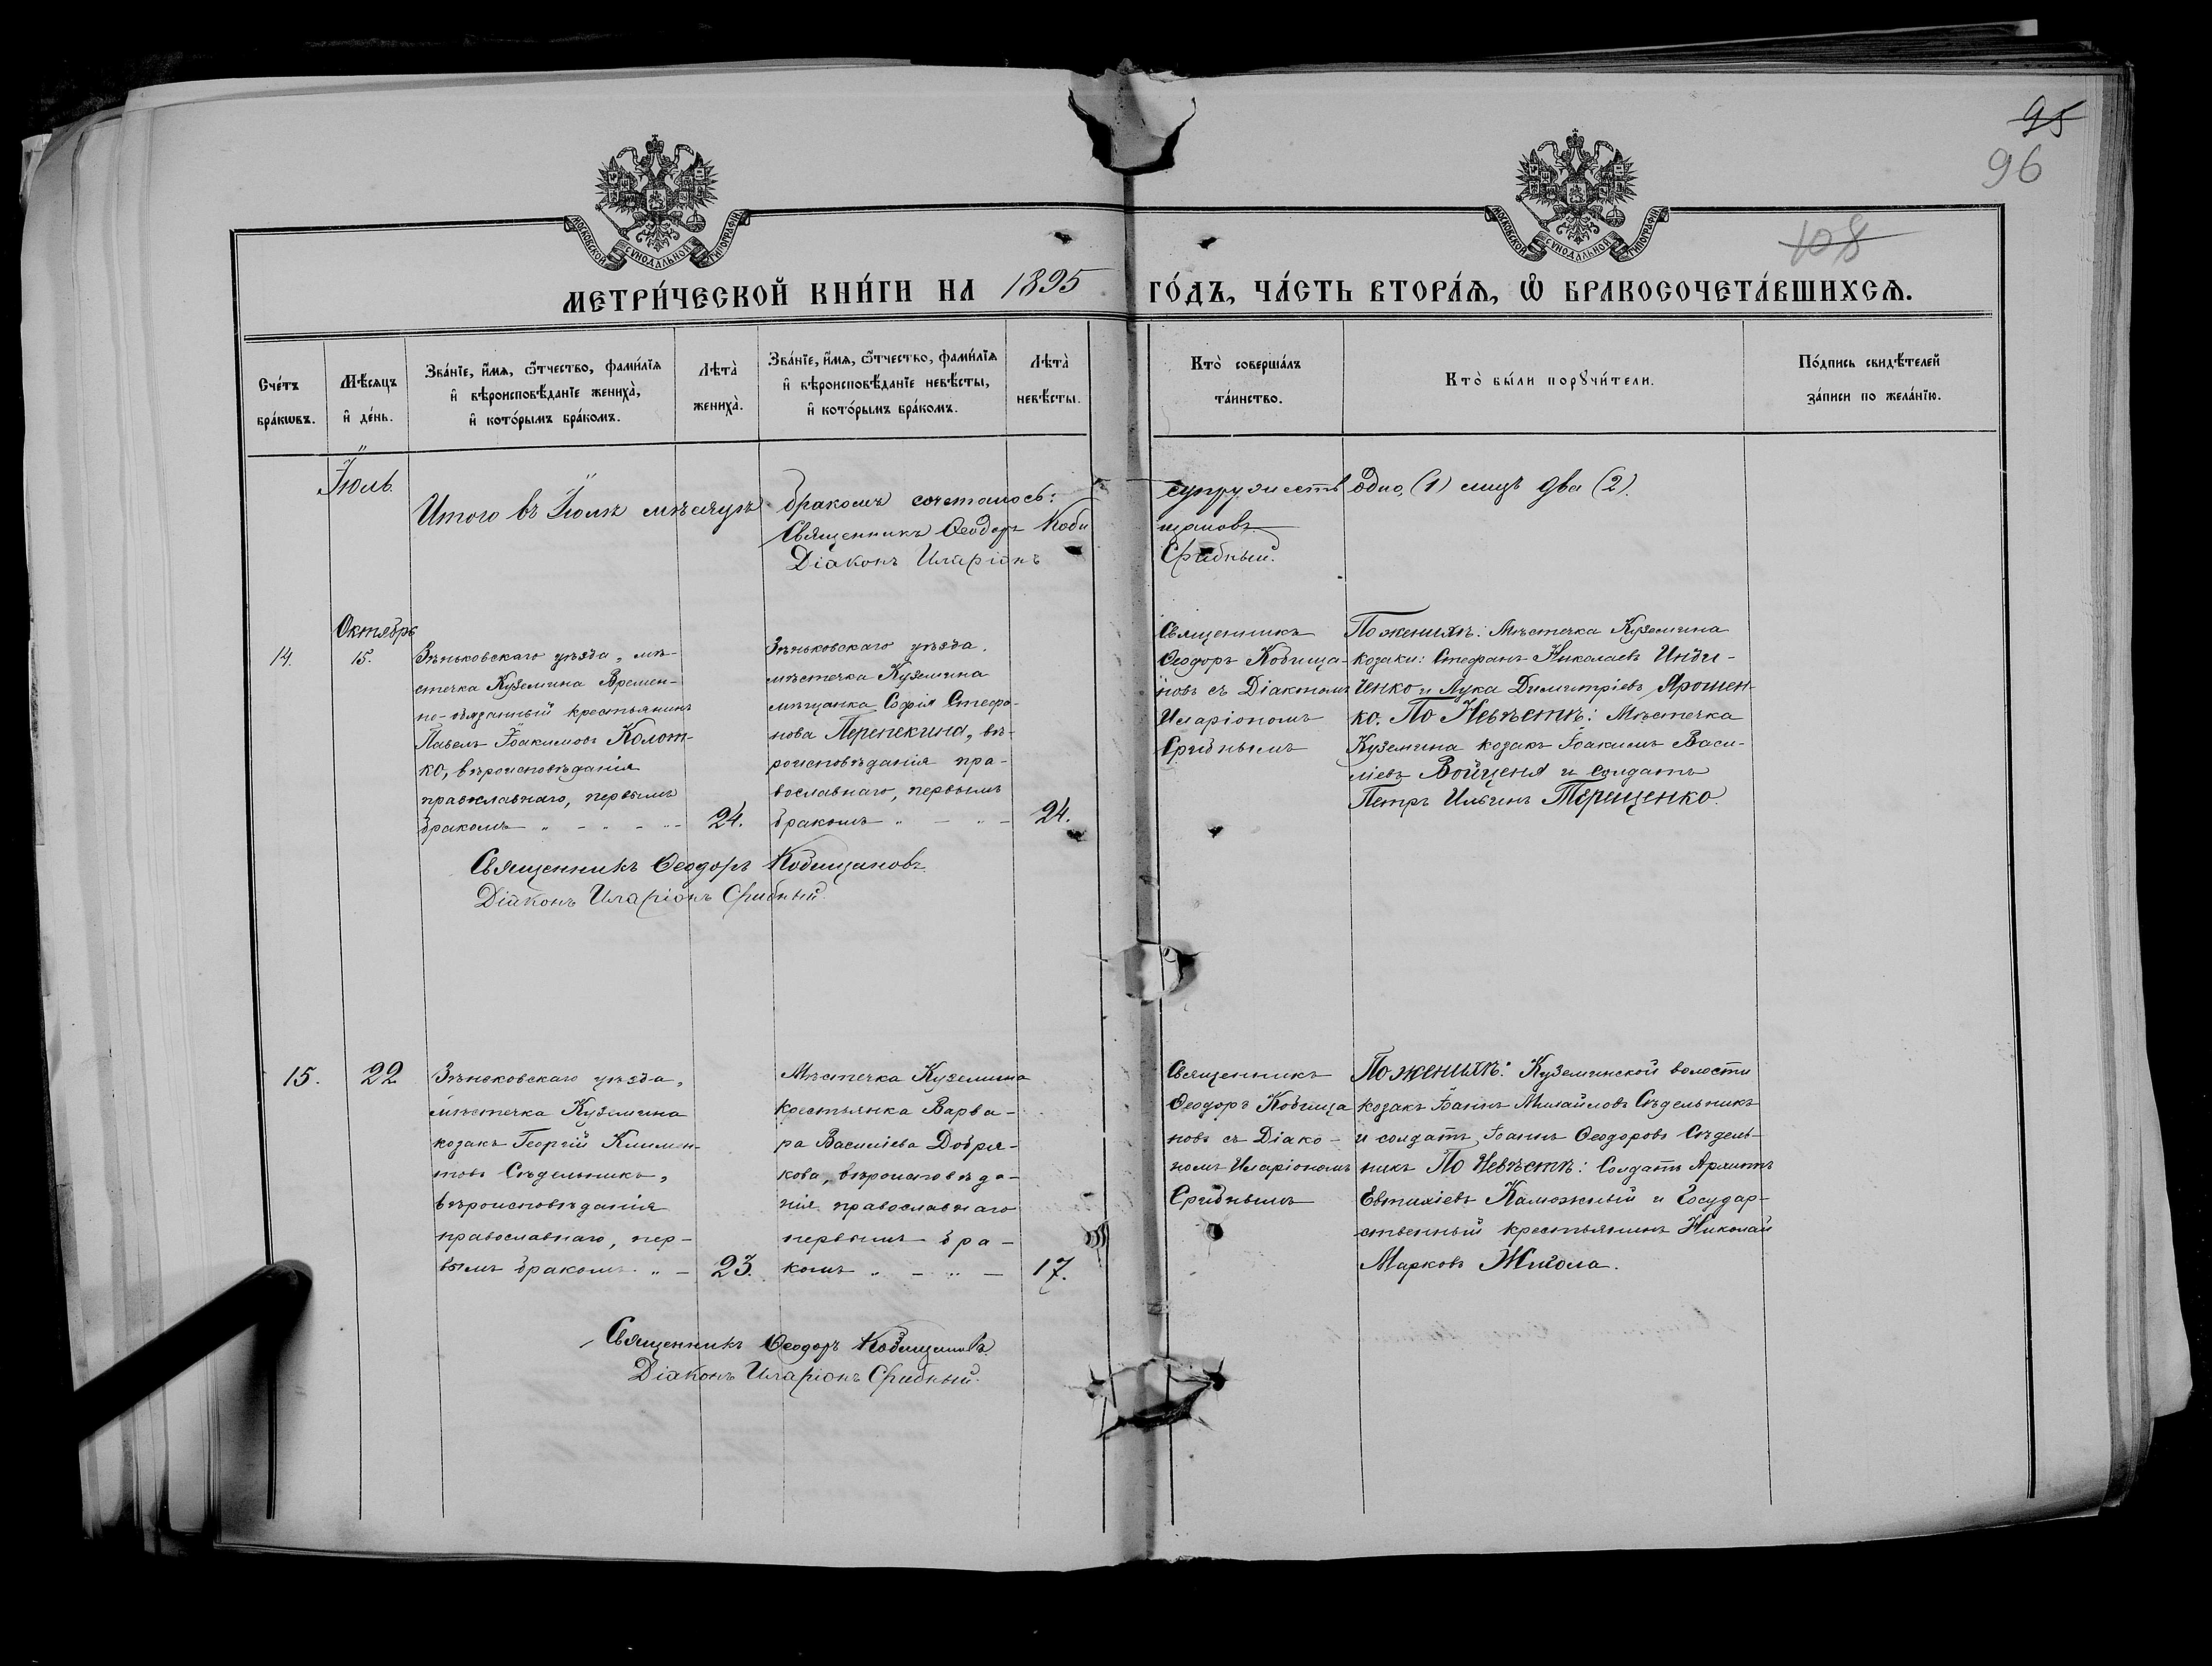 95
96
108
МОСКОВСКОЙ СѴНОДАЛЬНОЙ ТИПОГРАФІИ
МОСКОВСКОЙ СѴНОДАЛЬНОЙ ТИПОГРАФІИ
МЕТРИ́ЧЕСКОЙ КНИ́ГИ НА 1895 ГО́ДЪ, ЧА́СТЬ ВТОРА́Ѧ, Ѡ҆ БРАКОСОЧЕТА́ВШИХСѦ.
Сче́тъ
бра́кѡвъ.
Мѣ́сяцъ
и҆ де́нь.
Зва́нїе, и҆́мѧ, ѻ҆́тчество, фами́лїѧ
и҆ вѣроисповѣ́данїе жениха̀,
и҆ кото́рымъ бра́комъ.
Лѣта̀
жениха̀.
Зва́нїе, и҆́мѧ, ѻ҆́тчество, фами́лїѧ
и҆ вѣроисповѣ́данїе невѣ́сты,
и҆ кото́рымъ бра́комъ.
Лѣта̀
невѣ́сты.
Кто̀ соверша́лъ
та́инство.
Кто̀ бы́ли порꙋчи́тели.
По́дпись свидѣ́телей
за́писи по жела́нїю.
Іюль.
Итого въ Іюлѣ мѣсяцѣ бракомъ сочеталось: супружествъ одно (1) лицъ два (2).
Священникъ Ѳеодоръ Кобищановъ
Діаконъ Иларіонъ Срибный.
Октябрь
14.
15.
Зѣньковскаго уѣзда, мѣ-
стечка Куземина Времен-
но-обязанный крестьянинъ
Павелъ Іоакимовъ Колот-
ко, вѣроисповѣданія
православнаго, первымъ
бракомъ " - " - " -
24.
Зѣньковскаго уѣзда,
мѣстечка Куземина
мѣщанка Софія Стефа-
нова Перепекина, вѣ-
роисповѣданія пра-
вославнаго, первымъ
бракомъ " - " -
24.
Священникъ
Ѳеодоръ Кобища-
новъ съ Діакономъ
Иларіономъ
Срибнымъ
По женихѣ: Мѣстечка Куземина
козаки: Стефанъ Николаевъ Инди-
ченко и Лука Димитріевъ Ярошен-
ко. По Невѣстѣ: Мѣстечка
Куземина козакъ Іоакимъ Васи-
ліевъ Войценя и солдатъ
Петръ Ильинъ Терещенко.
Священникъ Ѳеодоръ Кобищановъ
Діаконъ Иларіонъ Срибный
15.
22
Зѣньковскаго уѣзда,
мѣстечка Куземина
козакъ Георгій Климен-
товъ Сѣдельникъ,
вѣроисповѣданія
православнаго, пер-
вымъ бракомъ " -
23.
Мѣстечка Куземина
крестьянка Варва-
ра Василіева Добря-
кова, вѣроисповѣда-
нія православнаго
первымъ бра-
комъ " - " -
17.
Священникъ
Ѳеодоръ Кобища
новъ съ Діако-
номъ Иларіономъ
Срибнымъ
По женихѣ: Куземинской волости
козакъ Іоаннъ Михайловъ Сѣдельникъ
и солдатъ Іоаннъ Ѳеодоровъ Сѣдель-
никъ По Невѣстѣ: Солдатъ Архипъ
Евтихіевъ Каможный и Государ-
ственный крестьянинъ Николай
Марковъ Жигола.
Священникъ Ѳеодоръ Кобищановъ
Діаконъ Иларіонъ Срибный.